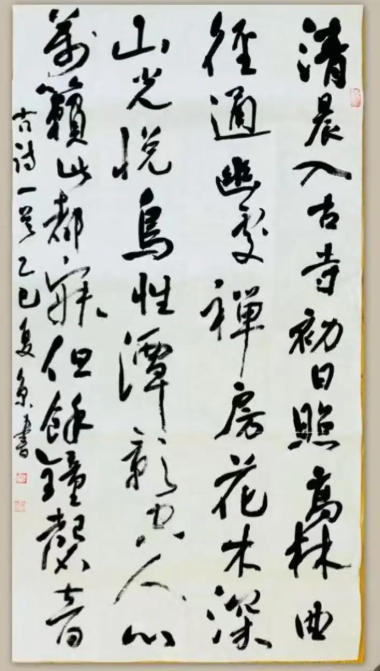 清晨入古寺初日照高林曲
徑通幽處禪房花木深
山光悅鳥性潭影空人心
萬籟此都寂但餘鐘磬音
古诗一首乙巳夏書